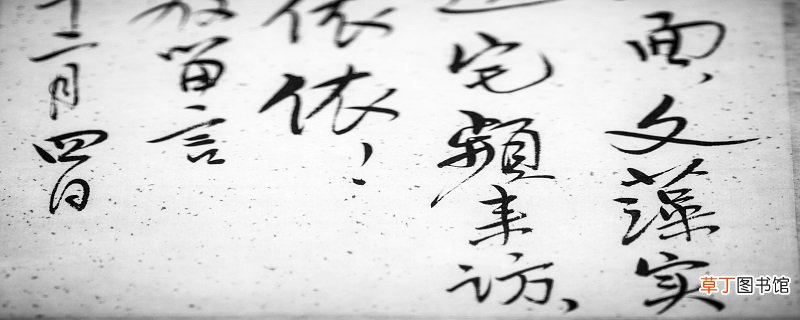 面、文藻实
宅頻来访、
依依！
留言
十二月四日
草丁图书馆